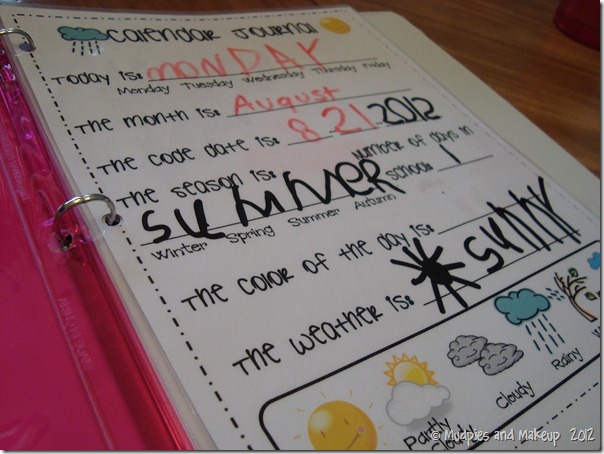 Calendar Journal
Today is: MONDAY
Monday Tuesday Wednesday Thursday Friday
The month is: August
The code date is: 8 21 2012
The season is: SUMMER
Winter Spring Summer Autumn
Number of days in school: 1
The color of the day is:
The weather is: SUNNY
Partly Cloudy
Cloudy
Rainy
© Mudpies and Makeup 2012